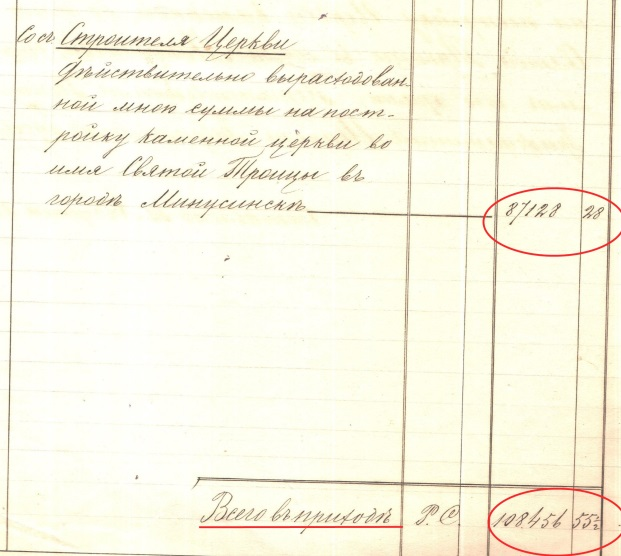 Со сч. Строителя Церкви
дѣйствительно вырасходован-
ной мною суммы на пост-
ройку каменной церкви во
имя Святой Троицы въ
городѣ Минусинскѣ 87128 28
Всего въ приходѣ Р. С. 108.456 55½